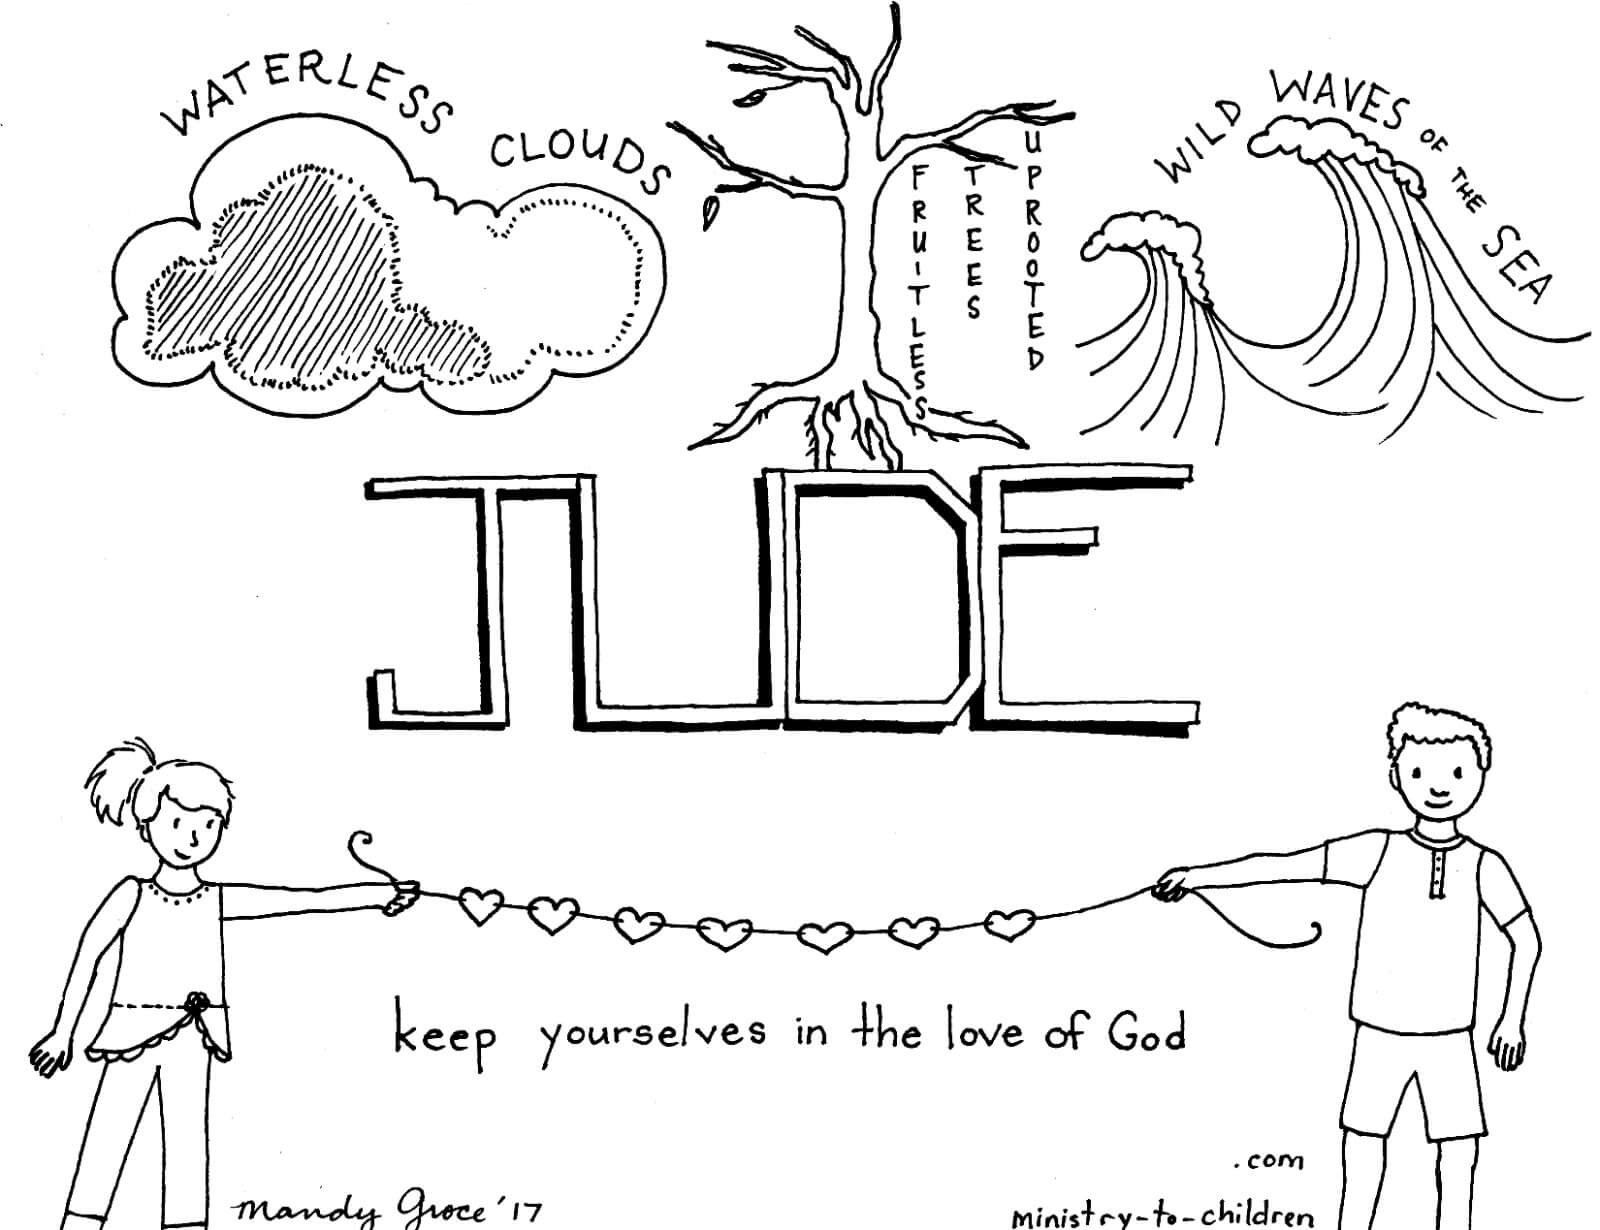 WATERLESS CLOUDS
FRUITLESS
TREES
UPROOTED
WILD WAVES OF THE SEA
JUDE
keep yourselves in the love of God
Mandy Groce '17
.com
ministry-to-children